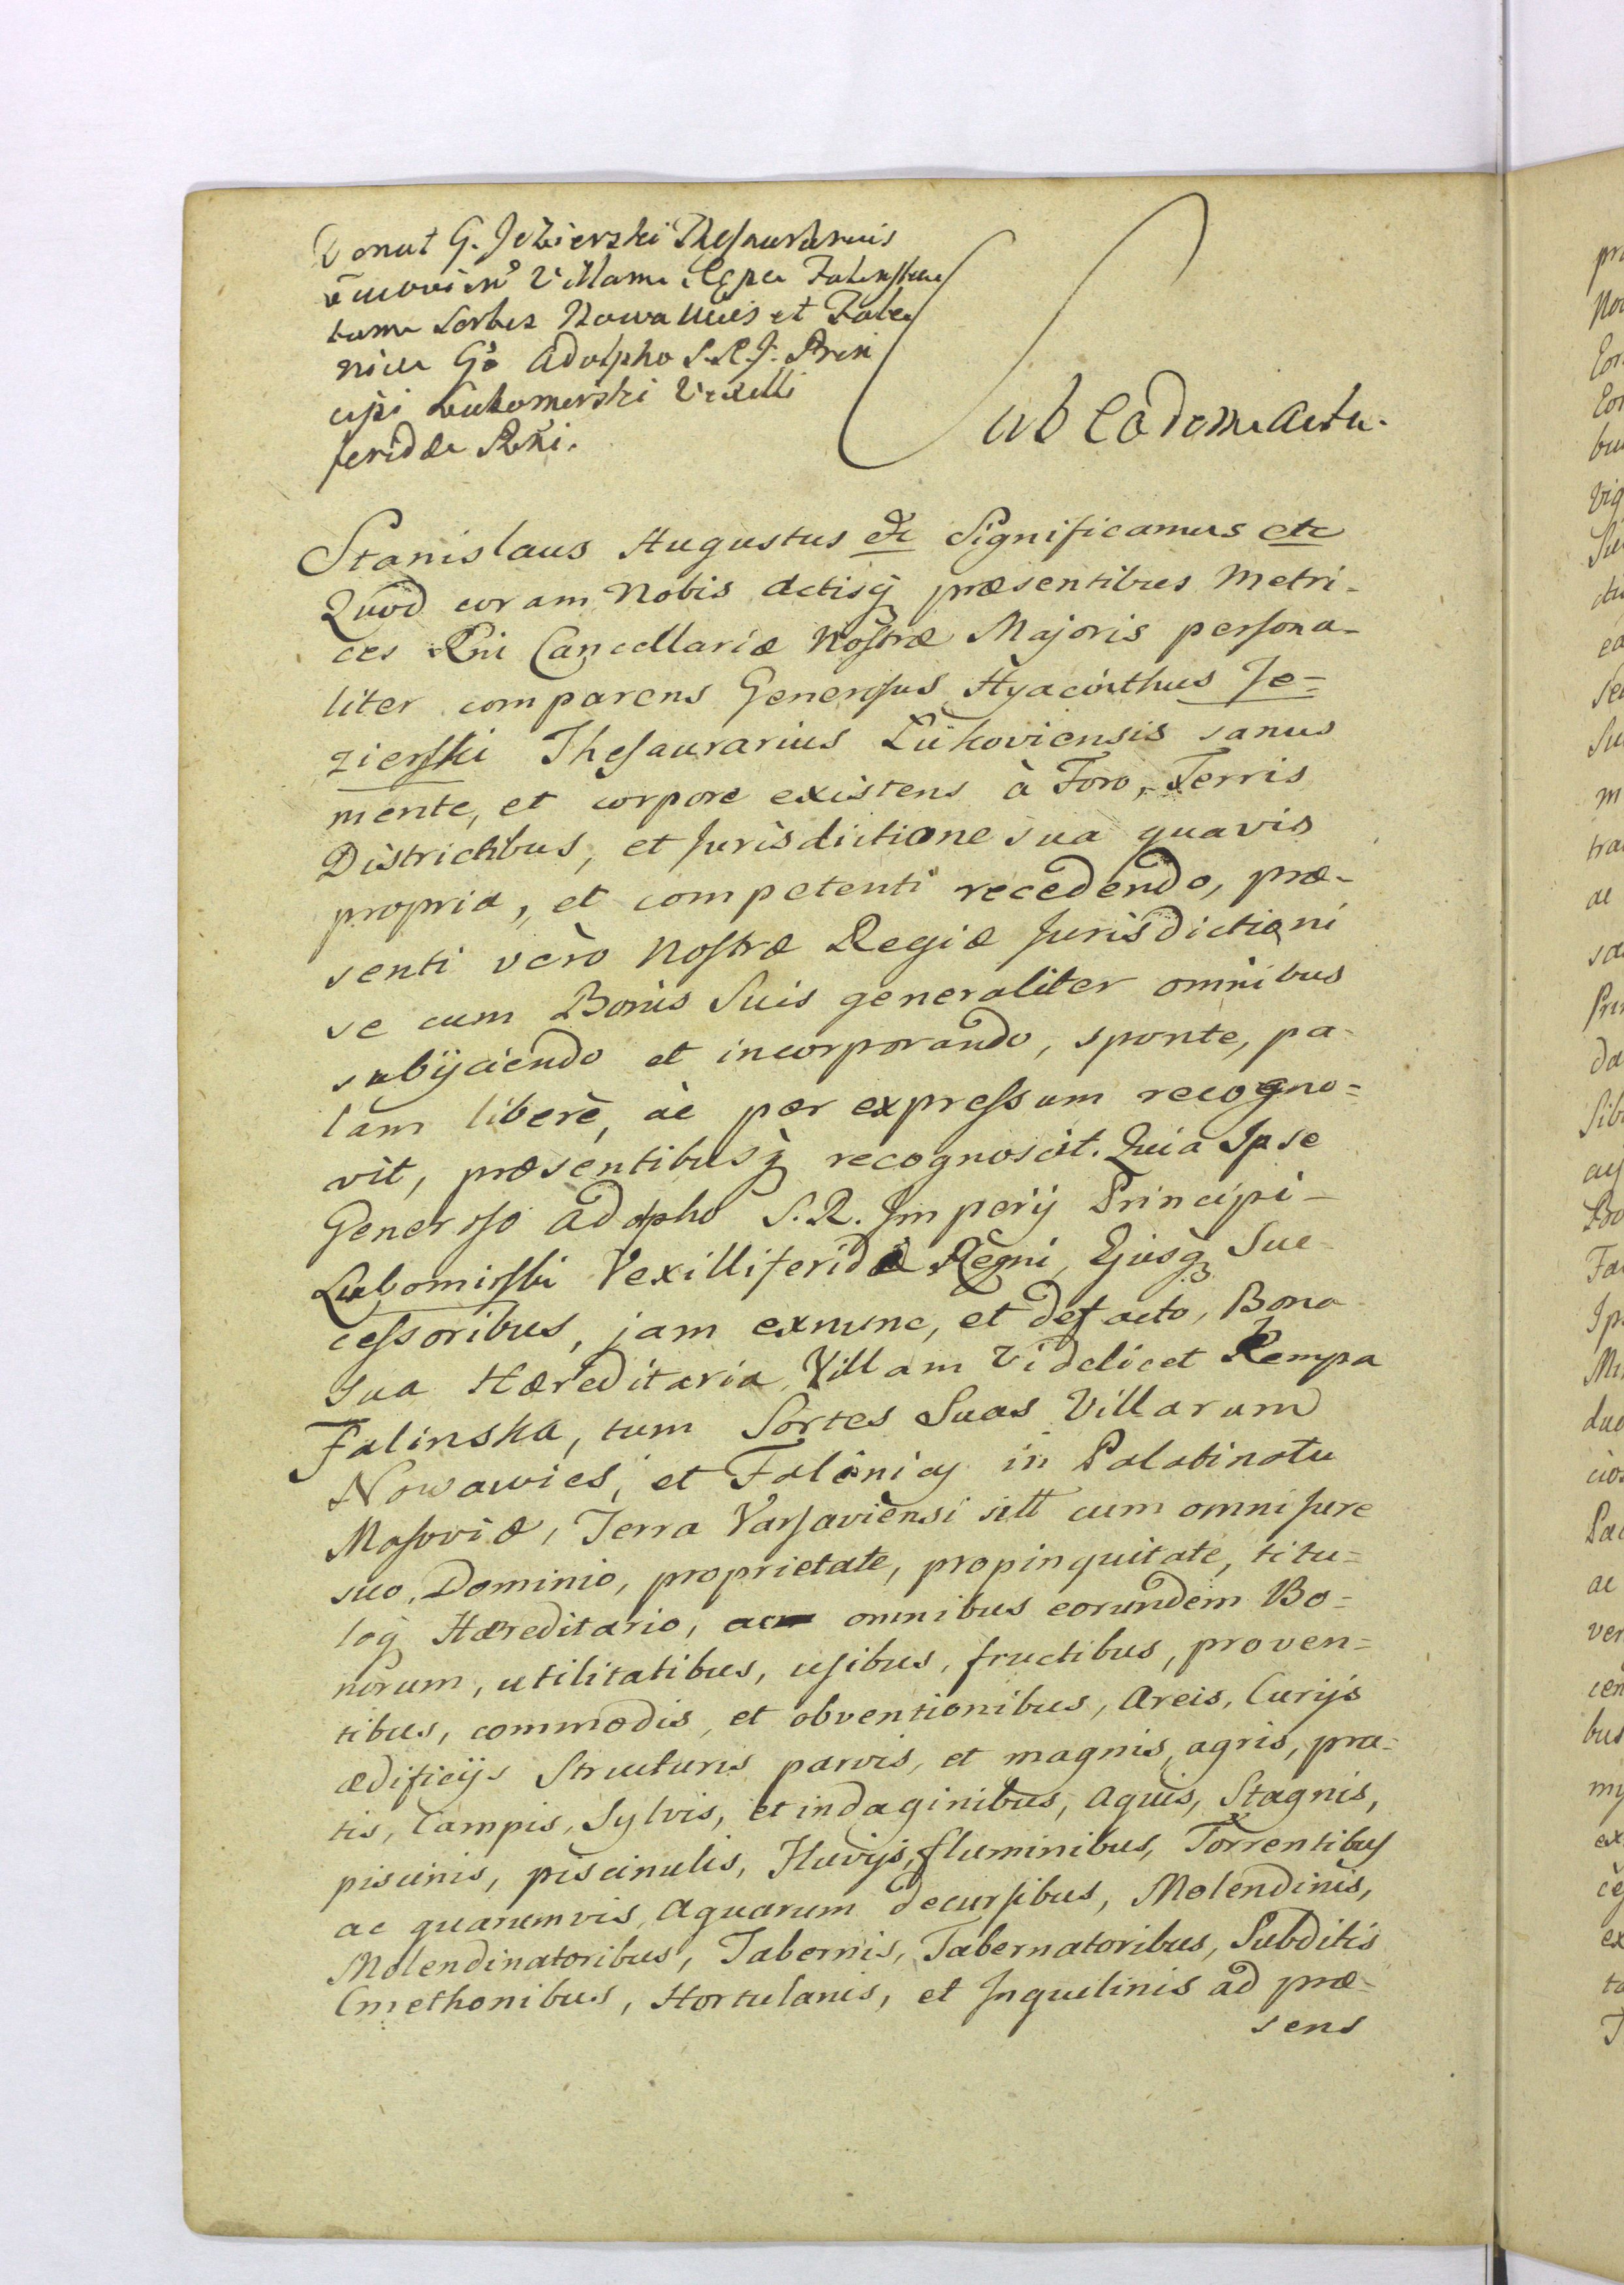 Donat G. Jezierski Thesaurarius
Lucovien Villam Kępa Falinska
tum Sortes Nowawies et Fale
nica Gō Adolpho S.R.J. Prin
cipi Lubomirski Vexilli
feridæ Rñi.
Sub Eadem Actu.
Stanislaus Augustus etc Significamus etc
Quod coram Nobis Actisq̃ præsentibus Metri-
ces Rni Cancellariæ Nostræ Majoris persona-
liter comparens Generosus Hyacinthus Je=
zierski Thesaurarius Lukoviensis sanus
mente, et corpore existens à Foro, Terris
Districtibus, et Jurisdictione sua quavis
propria, et competenti recedendo, præ-
senti vèro Nostræ Regiæ Jurisdictioni
se cum Bonis Suis generaliter omnibus
subijciendo et incorporando, sponte, pa-
làm liberè, àc per expressum recogno=
vit, præsentibusq̃ recognoscit. Quia Ipse
Generoso Adolpho S. R. Imperij Principi-
Lubomirski Vexilliferidæ Regni, Ejusq̃ Suc-
cessoribus, jam exnunc, et defacto, Bona
sua Hæreditaria Villam Videlicet Kempa
Falinska, tum Sortes Suas Villarum
Nowawies, et Falinicy in Palatinatu
Masoviæ, Terra Varsaviensi sitt cum omni Jure
suo, Dominio, proprietate, propinquitate, titu=
loq̃ Hæreditario, ac omnibus eorundem Bo=
norum, utilitatibus, usibus, fructibus, proven=
tibus, commodis, et obventionibus, Areis, Curijs
ædificijs Structuris parvis, et magnis, agris, pra=
tis, Campis, Sylvis, et indaginibus, Aquis, Stagnis,
piscinis, piscinulis, Fluvijs, fluminibus, Torrentibus
ac quarumvis Aquarum decursibus, Molendinis,
Molendinatoribus, Tabernis, Tabernatoribus, Subditis
Cmethonibus, Hortulanis, et Inquilinis ad præ-
sens